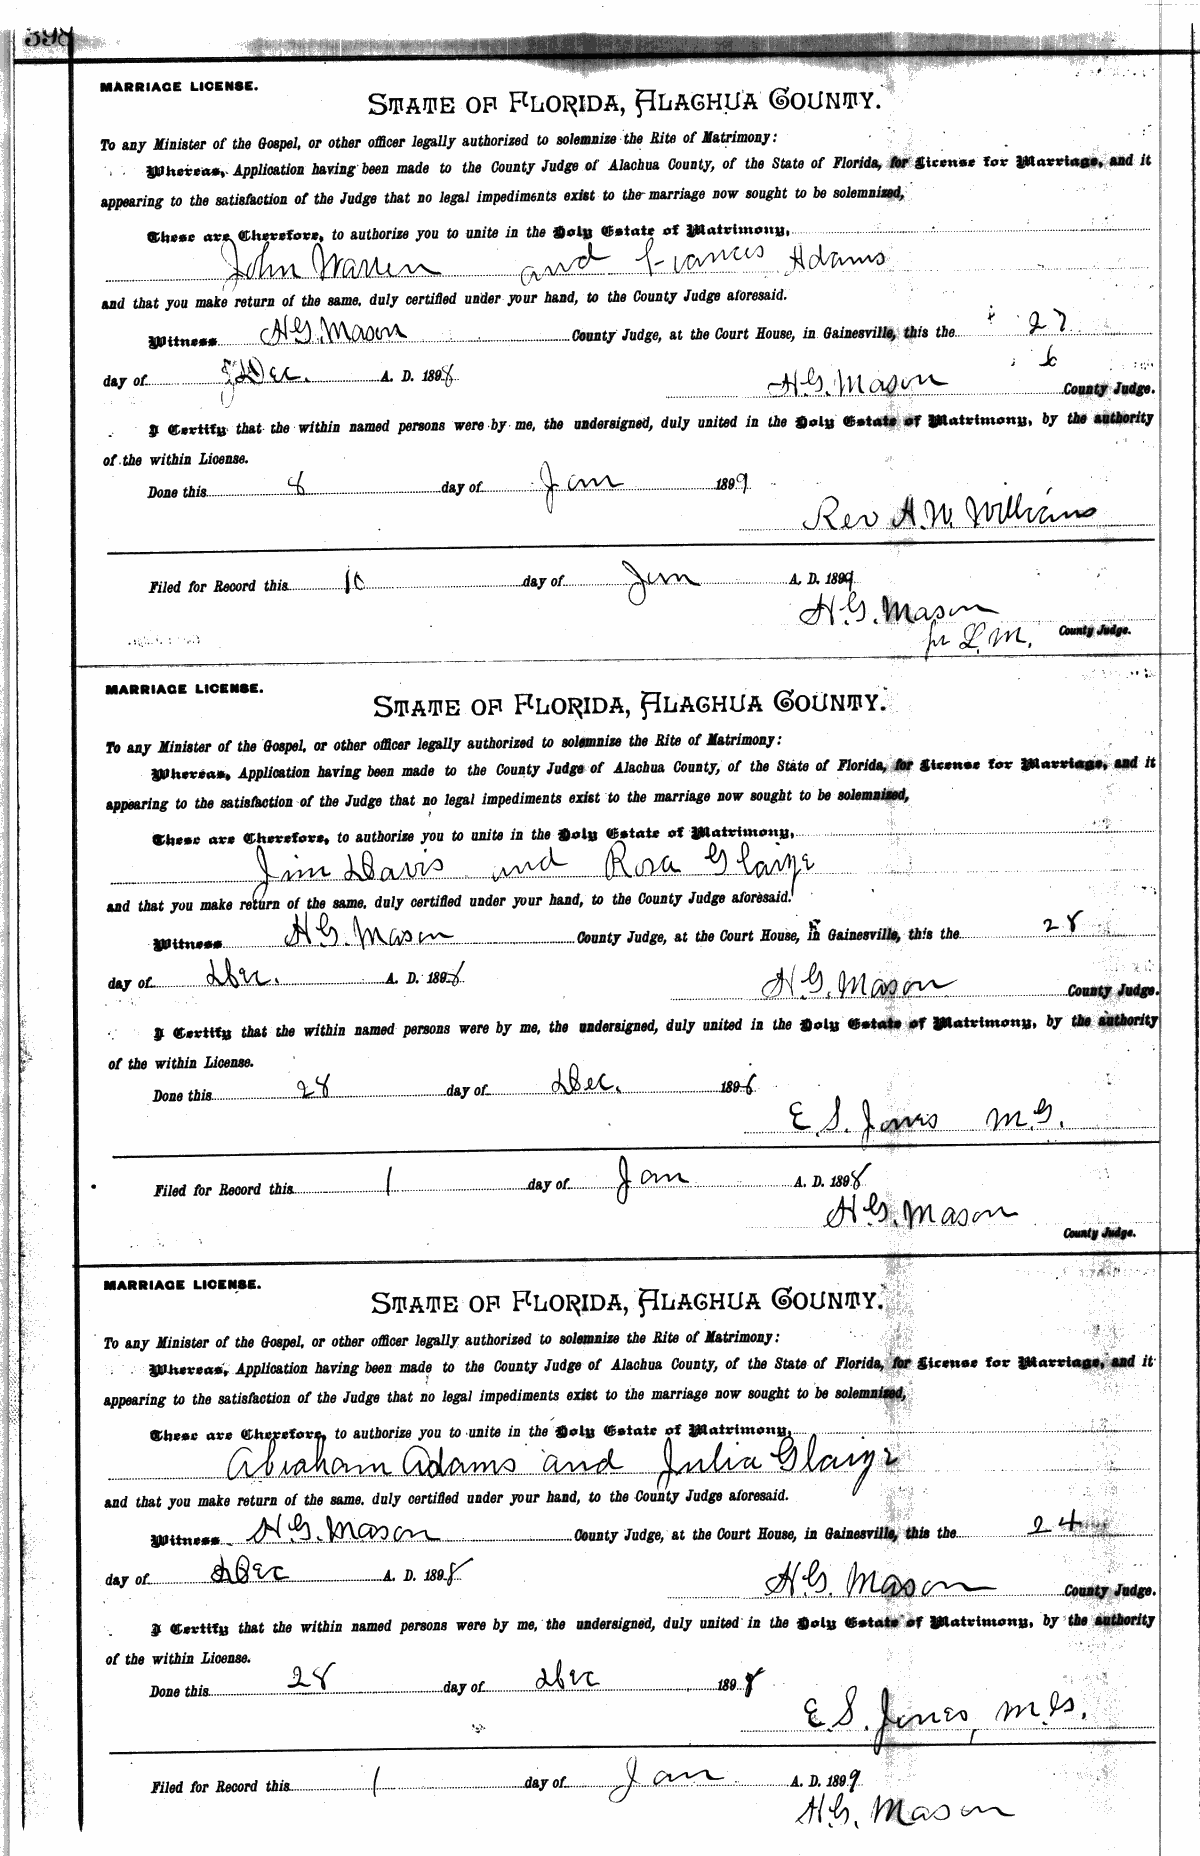 398
MARRIAGE LICENSE.
STATE OF FLORIDA, ALACHUA COUNTY.
To any Minister of the Gospel, or other officer legally authorized to solemnize the Rite of Matrimony:
Whereas, Application having been made to the County Judge of Alachua County, of the State of Florida, for License for Marriage, and it
appearing to the satisfaction of the Judge that no legal impediments exist to the marriage now sought to be solemnized,
These are Therefore, to authorize you to unite in the Holy Estate of Matrimony,
John Warren and Frances Adams
and that you make return of the same, duly certified under your hand, to the County Judge aforesaid.
Witness H.G. Mason County Judge, at the Court House, in Gainesville, this the 27
day of Dec. A. D. 1898 H.G. Mason County Judge.
I Certify that the within named persons were by me, the undersigned, duly united in the Holy Estate of Matrimony, by the authority
of the within License.
Done this 8 day of Jan 1899
Rev A.W. Williams
Filed for Record this 10 day of Jan A. D. 1899
H.G. Mason
pr L.M. County Judge.
MARRIAGE LICENSE.
STATE OF FLORIDA, ALACHUA COUNTY.
To any Minister of the Gospel, or other officer legally authorized to solemnize the Rite of Matrimony:
Whereas, Application having been made to the County Judge of Alachua County, of the State of Florida, for License for Marriage, and it
appearing to the satisfaction of the Judge that no legal impediments exist to the marriage now sought to be solemnized,
These are Therefore, to authorize you to unite in the Holy Estate of Matrimony,
Jim Davis and Rosa Glaize
and that you make return of the same, duly certified under your hand, to the County Judge aforesaid.
Witness H.G. Mason County Judge, at the Court House, in Gainesville, this the 28
day of Dec. A. D. 1898 H.G. Mason County Judge.
I Certify that the within named persons were by me, the undersigned, duly united in the Holy Estate of Matrimony, by the authority
of the within License.
Done this 28 day of Dec. 1898
E. S. Jones M.G.
Filed for Record this 1 day of Jan A. D. 1898
H.G. Mason
County Judge.
MARRIAGE LICENSE.
STATE OF FLORIDA, ALACHUA COUNTY.
To any Minister of the Gospel, or other officer legally authorized to solemnize the Rite of Matrimony:
Whereas, Application having been made to the County Judge of Alachua County, of the State of Florida, for License for Marriage, and it
appearing to the satisfaction of the Judge that no legal impediments exist to the marriage now sought to be solemnized,
These are Therefore, to authorize you to unite in the Holy Estate of Matrimony,
Abraham Adams and Julia Glaize
and that you make return of the same, duly certified under your hand, to the County Judge aforesaid.
Witness H.G. Mason County Judge, at the Court House, in Gainesville, this the 24
day of Dec A. D. 1898 H.G. Mason County Judge.
I Certify that the within named persons were by me, the undersigned, duly united in the Holy Estate of Matrimony, by the authority
of the within License.
Done this 28 day of Dec 1898
E. S. Jones, M.G.
Filed for Record this 1 day of Jan A. D. 1899
H.G. Mason